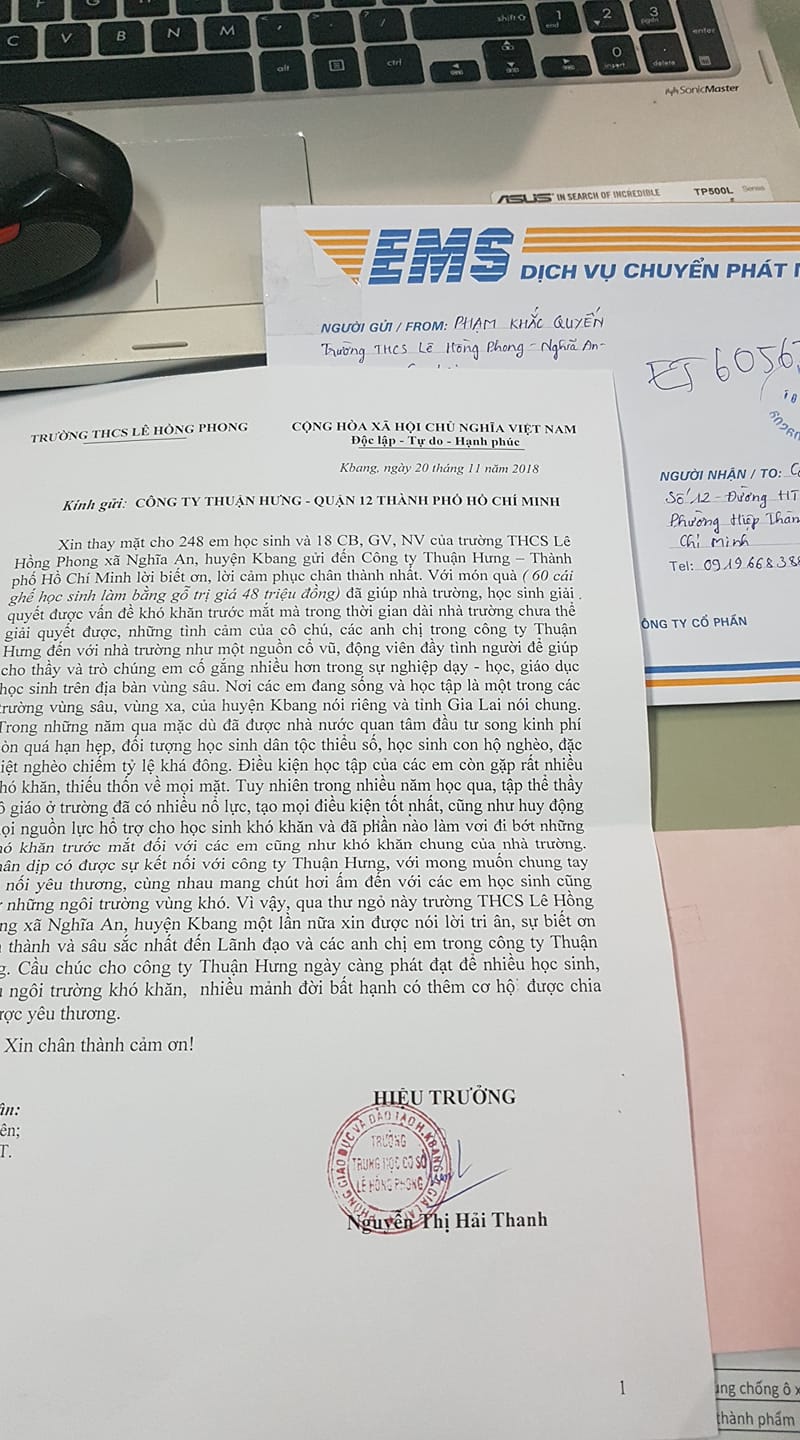 C V B N M
shift
1
end
2
3
pgdn
enter
alt
ctrl
0
insert
delete
SonicMaster
ASUS IN SEARCH OF INCREDIBLE TP500L
EMS
DỊCH VỤ CHUYỂN PHÁT
NGƯỜI GỬI / FROM: PHẠM KHẮC QUYẾN
Trường THCS Lê Hồng Phong - Nghĩa An-
NGƯỜI NHẬN / TO:
Số 12 - Đường HT
Phường Hiệp Thàn
Chí Minh
Tel: 091966838
ÔNG TY CỔ PHẦN
TRƯỜNG THCS LÊ HỒNG PHONG
CỘNG HÒA XÃ HỘI CHỦ NGHĨA VIỆT NAM
Độc lập - Tự do - Hạnh phúc
Kbang, ngày 20 tháng 11 năm 2018
Kính gửi: CÔNG TY THUẬN HƯNG - QUẬN 12 THÀNH PHỐ HỒ CHÍ MINH
Xin thay mặt cho 248 em học sinh và 18 CB, GV, NV của trường THCS Lê
Hồng Phong xã Nghĩa An, huyện Kbang gửi đến Công ty Thuận Hưng – Thành
phố Hồ Chí Minh lời biết ơn, lời cảm phục chân thành nhất. Với món quà ( 60 cái
ghế học sinh làm bằng gỗ trị giá 48 triệu đồng) đã giúp nhà trường, học sinh giải
quyết được vấn đề khó khăn trước mắt mà trong thời gian dài nhà trường chưa thể
giải quyết được, những tình cảm của cô chú, các anh chị trong công ty Thuận
Hưng đến với nhà trường như một nguồn cổ vũ, động viên đầy tình người để giúp
cho thầy và trò chúng em cố gắng nhiều hơn trong sự nghiệp dạy - học, giáo dục
học sinh trên địa bàn vùng sâu. Nơi các em đang sống và học tập là một trong các
trường vùng sâu, vùng xa, của huyện Kbang nói riêng và tỉnh Gia Lai nói chung.
Trong những năm qua mặc dù đã được nhà nước quan tâm đầu tư song kinh phí
òn quá hạn hẹp, đối tượng học sinh dân tộc thiểu số, học sinh con hộ nghèo, đặc
iệt nghèo chiếm tỷ lệ khá đông. Điều kiện học tập của các em còn gặp rất nhiều
hó khăn, thiếu thốn về mọi mặt. Tuy nhiên trong nhiều năm học qua, tập thể thầy
ô giáo ở trường đã có nhiều nổ lực, tạo mọi điều kiện tốt nhất, cũng như huy động
ọi nguồn lực hổ trợ cho học sinh khó khăn và đã phần nào làm vơi đi bớt những
hó khăn trước mắt đối với các em cũng như khó khăn chung của nhà trường.
hân dịp có được sự kết nối với công ty Thuận Hưng, với mong muốn chung tay
nối yêu thương, cùng nhau mang chút hơi ấm đến với các em học sinh cũng
những ngôi trường vùng khó. Vì vậy, qua thư ngỏ này trường THCS Lê Hồng
ng xã Nghĩa An, huyện Kbang một lần nữa xin được nói lời tri ân, sự biết ơn
thành và sâu sắc nhất đến Lãnh đạo và các anh chị em trong công ty Thuận
g. Cầu chúc cho công ty Thuận Hưng ngày càng phát đạt để nhiều học sinh,
ngôi trường khó khăn, nhiều mảnh đời bất hạnh có thêm cơ hộ được chia
ược yêu thương.
Xin chân thành cảm ơn!
HIỆU TRƯỞNG
PHÒNG GIÁO DỤC VÀ ĐÀO TẠO H.KBANG T.GIA LAI
TRƯỜNG
TRUNG HỌC CƠ SỞ
LÊ HỒNG PHONG
Nguyễn Thị Hải Thanh
ân:
ên;
T.
1
ng chống ô x
thành phẩm